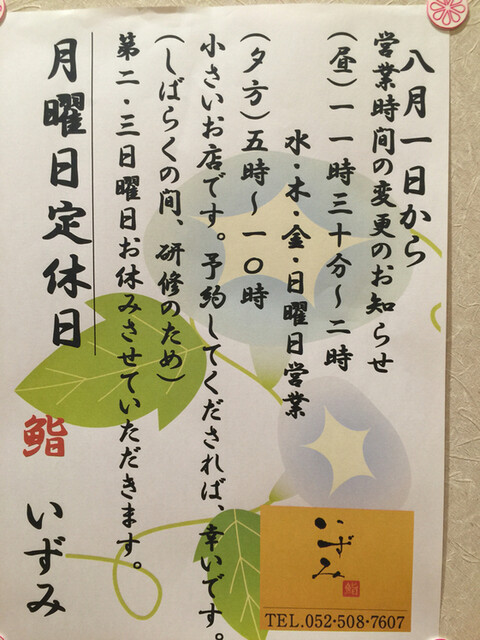 八月一日から
営業時間の変更のお知らせ
(昼)一一時三十分～二時
水・木・金・日曜日営業
(夕方)五時～一〇時
小さいお店です。予約してくだされば、幸いです。
(しばらくの間、研修のため)
第二・三日曜日お休みさせていただきます。
月曜日定休日
鮨 いずみ
いずみ
鮨
TEL.052-508-7607